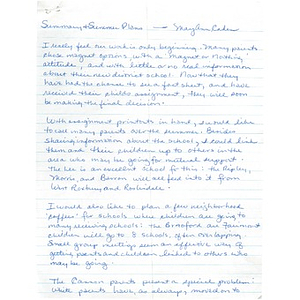 Summary & Summer Plans — Mary Ellen
I really feel our work is only beginning. Many parents
chose magnet options with a "magnet or nothing
attitude", and with little or no real information
about their new district school. Now that they
have had the chance to see a fact sheet, and have
received their pupil's assignment, they will soon
be making the final decision.
With assignment printouts in hand, I would like
to call many parents over the summer. Besides
sharing information about the school, I could link
them and their children up to others in the
area who may be going for mutual support.
The Lee is an excellent school for this: the Ripley,
Morris and Barron will all feed into it from
West Roxbury and Roslindale.
I would also like to plan a few neighborhood
"coffees" for schools where children are going to
many receiving schools: the Bradford and Fairmount
children will go to 8 schools, often overlapping.
Small group meetings seem an effective way of
getting parents and children linked to others who
may be going.
The parents present a special problem:
White parents have, as always, moved on to